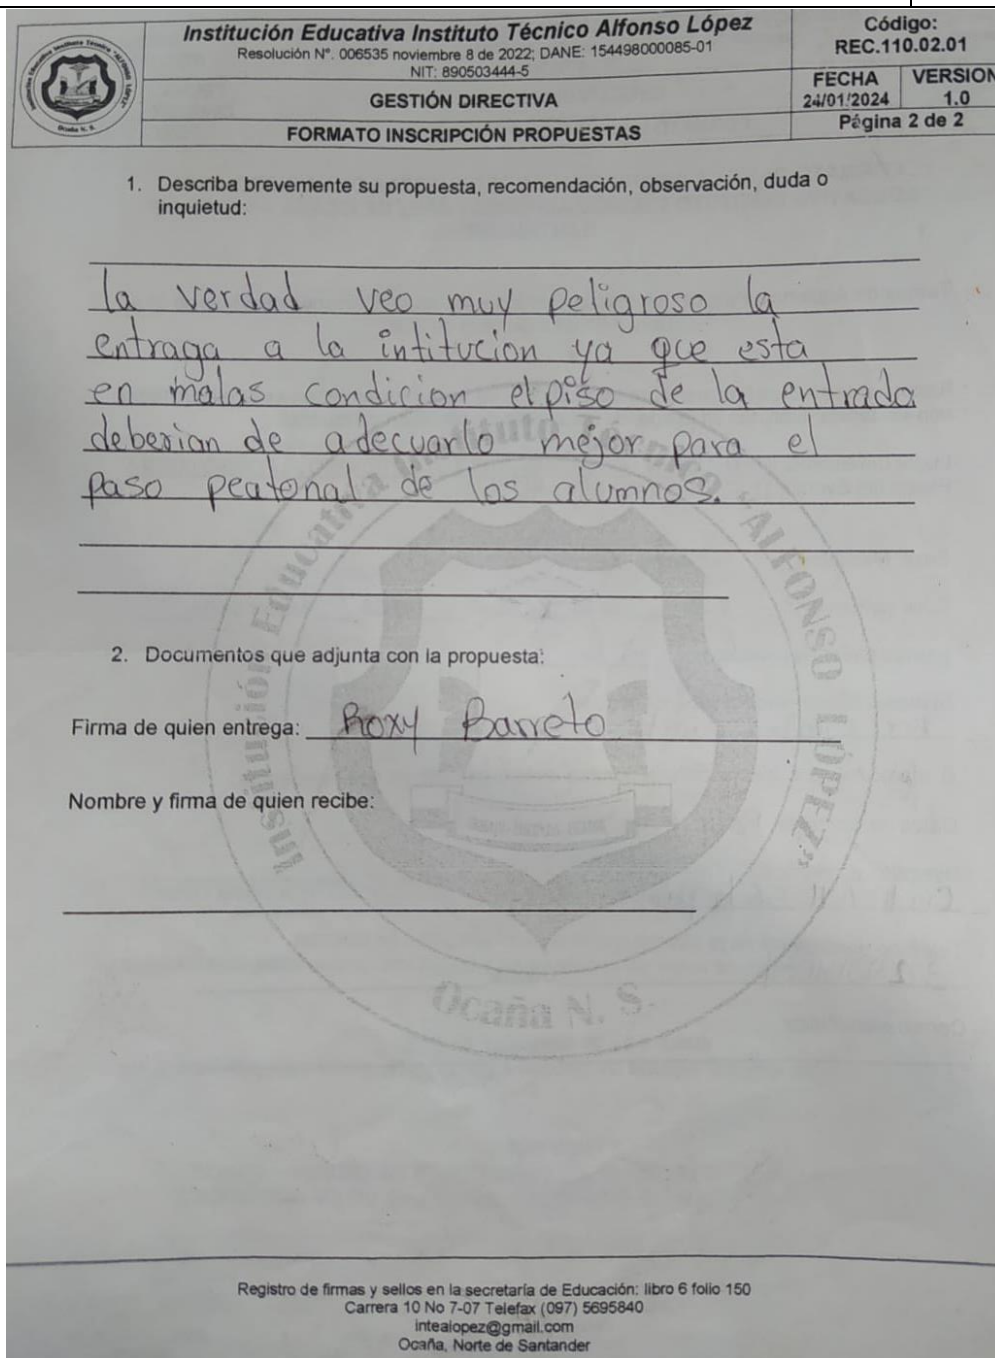 Institución Educativa Instituto Técnico Alfonso López
Resolución N°. 006535 noviembre 8 de 2022; DANE: 154498000085-01
NIT: 890503444-5
GESTIÓN DIRECTIVA
FORMATO INSCRIPCIÓN PROPUESTAS
Código:
REC.110.02.01
FECHA VERSION
24/01/2024 1.0
Página 2 de 2
Ocaña N. S.
1. Describa brevemente su propuesta, recomendación, observación, duda o
inquietud:
la verdad veo muy peligroso la
entraga a la intitucion ya que esta
en malas condicion el piso de la entrada
deberian de adecuarlo mejor para el
paso peatonal de los alumnos.
2. Documentos que adjunta con la propuesta:
Firma de quien entrega: Roxy Barreto
Nombre y firma de quien recibe:
Institución Educativa Instituto Técnico "ALFONSO LÓPEZ"
Ocaña N. S.
Registro de firmas y sellos en la secretaría de Educación: libro 6 folio 150
Carrera 10 No 7-07 Telefax (097) 5695840
intealopez@gmail.com
Ocaña, Norte de Santander